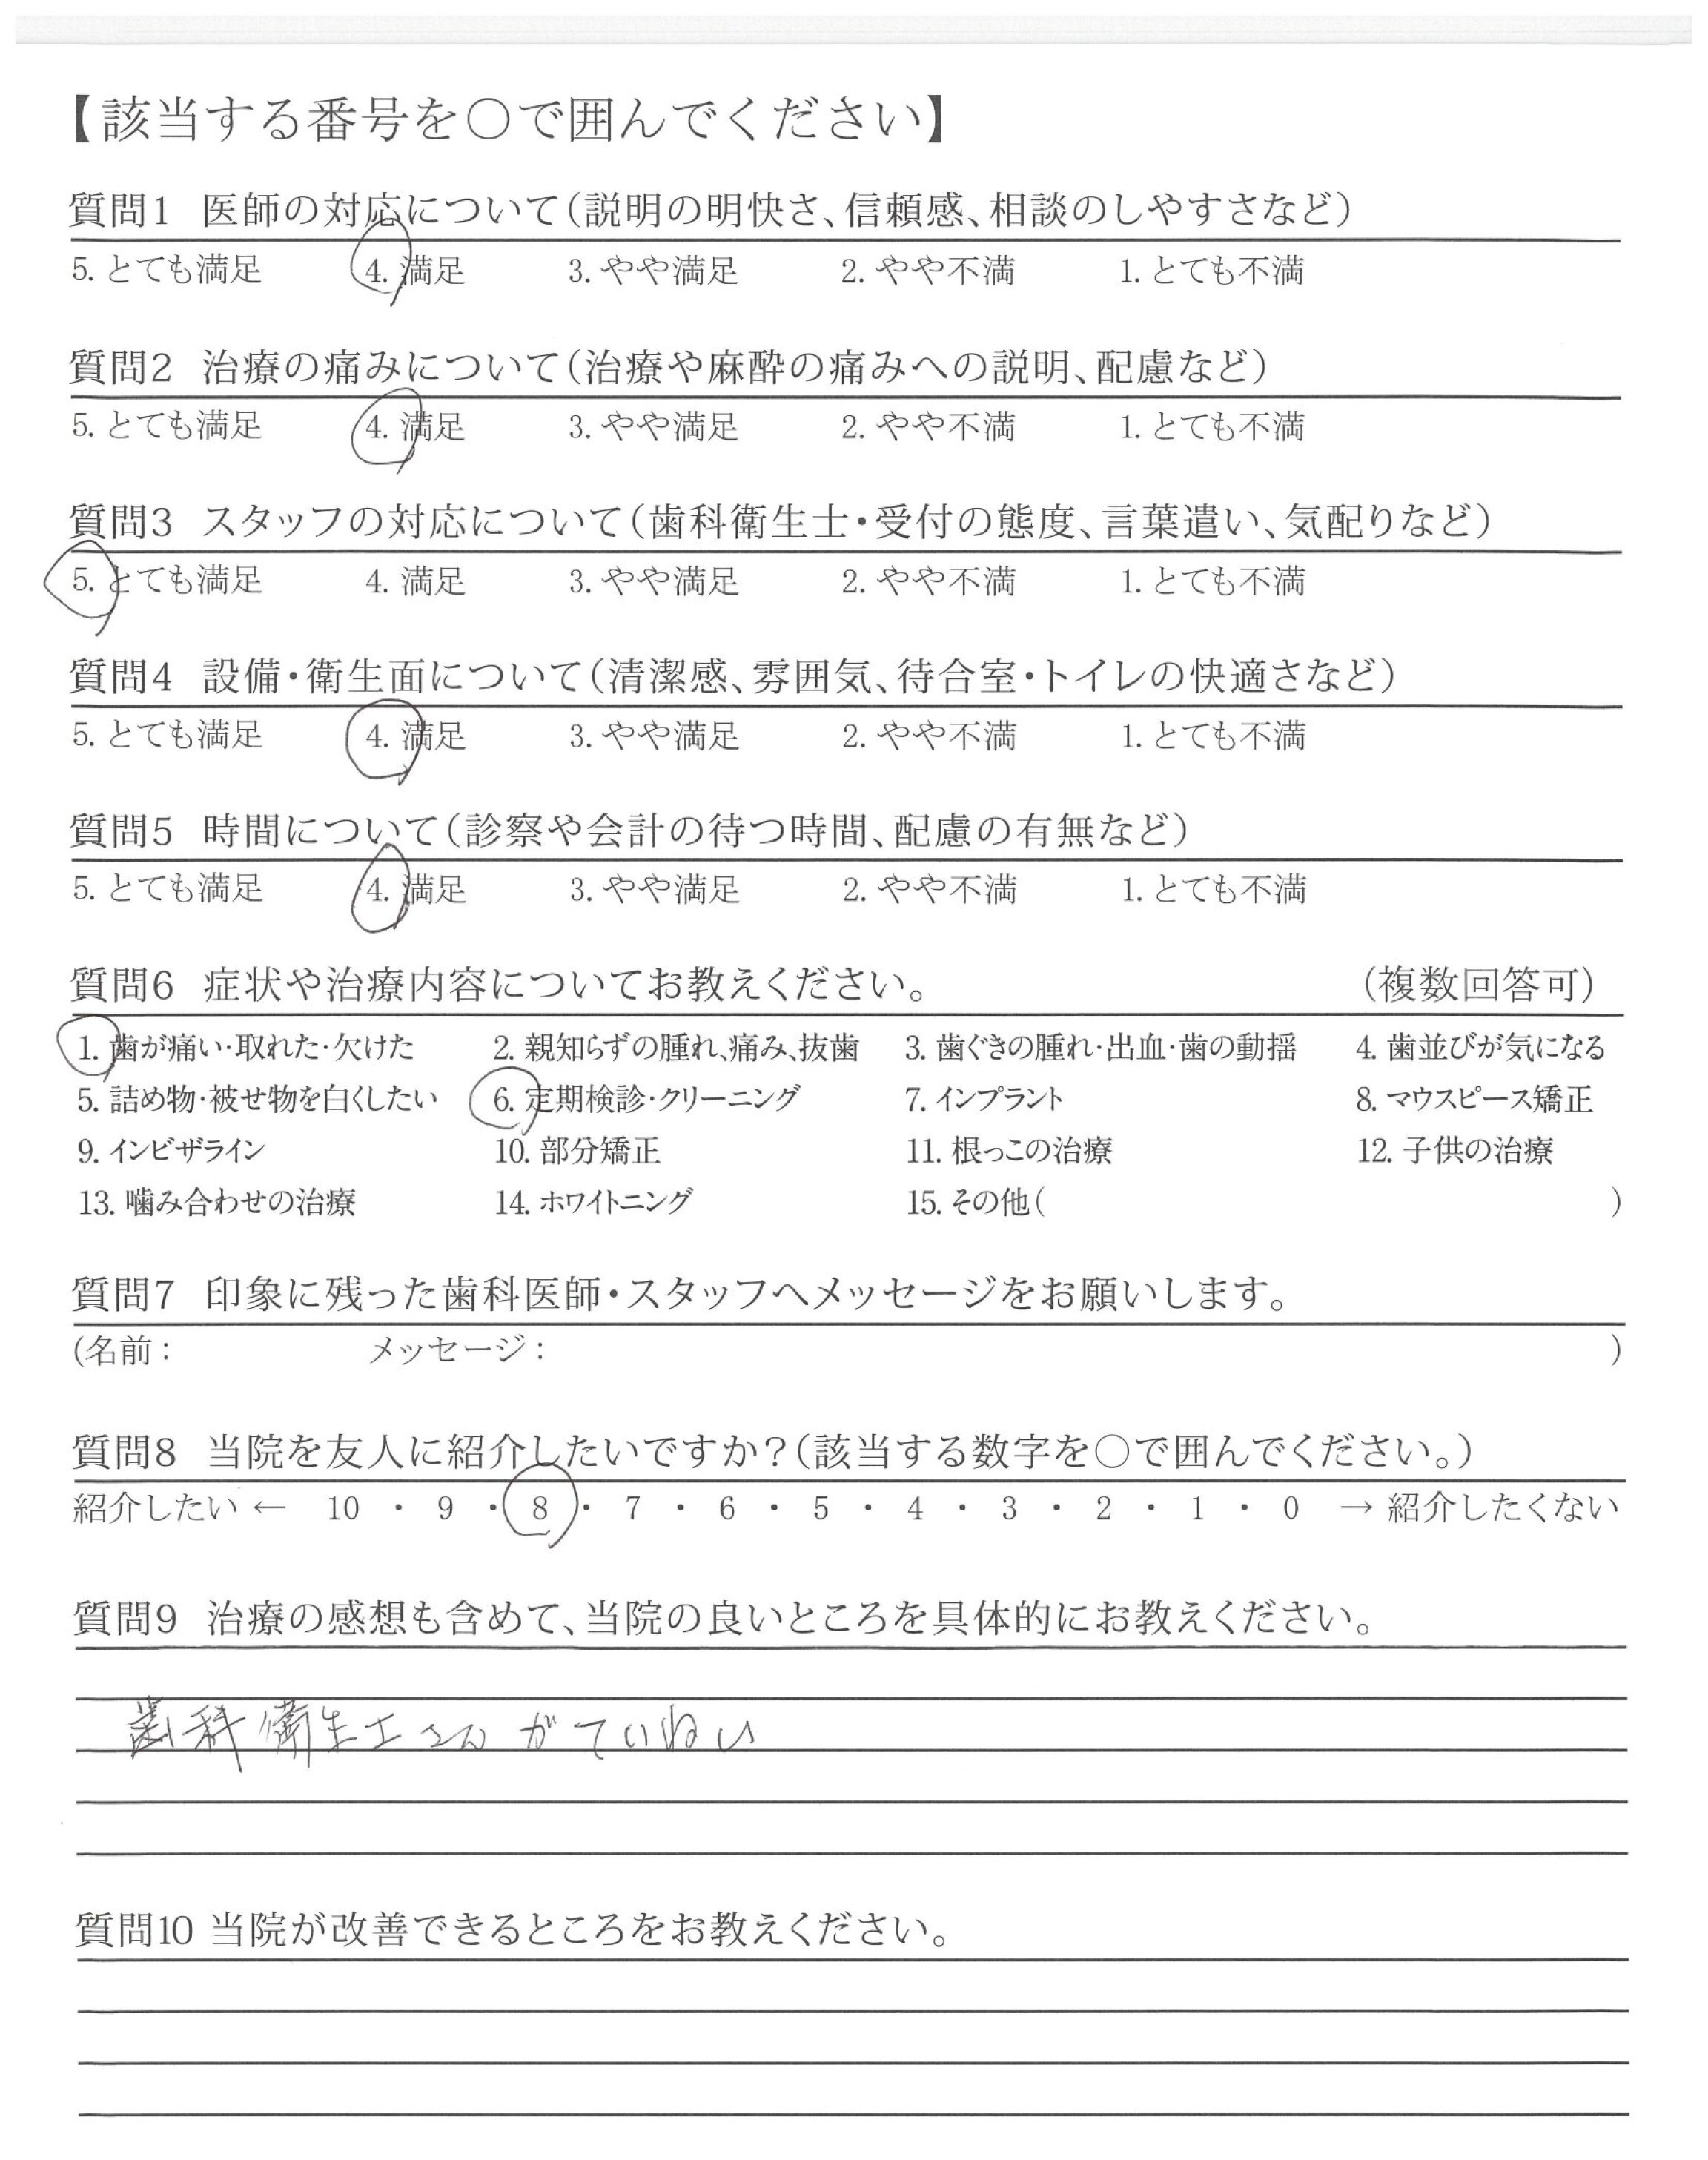 【該当する番号を○で囲んでください】
質問1 医師の対応について(説明の明快さ、信頼感、相談のしやすさなど)
5. とても満足 4. 満足 3. やや満足 2. やや不満 1. とても不満
質問2 治療の痛みについて(治療や麻酔の痛みへの説明、配慮など)
5. とても満足 4. 満足 3. やや満足 2. やや不満 1. とても不満
質問3 スタッフの対応について(歯科衛生士・受付の態度、言葉遣い、気配りなど)
5. とても満足 4. 満足 3. やや満足 2. やや不満 1. とても不満
質問4 設備・衛生面について(清潔感、雰囲気、待合室・トイレの快適さなど)
5. とても満足 4. 満足 3. やや満足 2. やや不満 1. とても不満
質問5 時間について(診察や会計の待つ時間、配慮の有無など)
5. とても満足 4. 満足 3. やや満足 2. やや不満 1. とても不満
質問6 症状や治療内容についてお教えください。 (複数回答可)
1. 歯が痛い・取れた・欠けた 2. 親知らずの腫れ、痛み、抜歯 3. 歯ぐきの腫れ・出血・歯の動揺 4. 歯並びが気になる
5. 詰め物・被せ物を白くしたい 6. 定期検診・クリーニング 7. インプラント 8. マウスピース矯正
9. インビザライン 10. 部分矯正 11. 根っこの治療 12. 子供の治療
13. 噛み合わせの治療 14. ホワイトニング 15. その他( )
質問7 印象に残った歯科医師・スタッフへメッセージをお願いします。
(名前: メッセージ: )
質問8 当院を友人に紹介したいですか?(該当する数字を○で囲んでください。)
紹介したい ← 10 ・ 9 ・ 8 ・ 7 ・ 6 ・ 5 ・ 4 ・ 3 ・ 2 ・ 1 ・ 0 → 紹介したくない
質問9 治療の感想も含めて、当院の良いところを具体的にお教えください。
歯科衛生士さんがていねい
質問10 当院が改善できるところをお教えください。